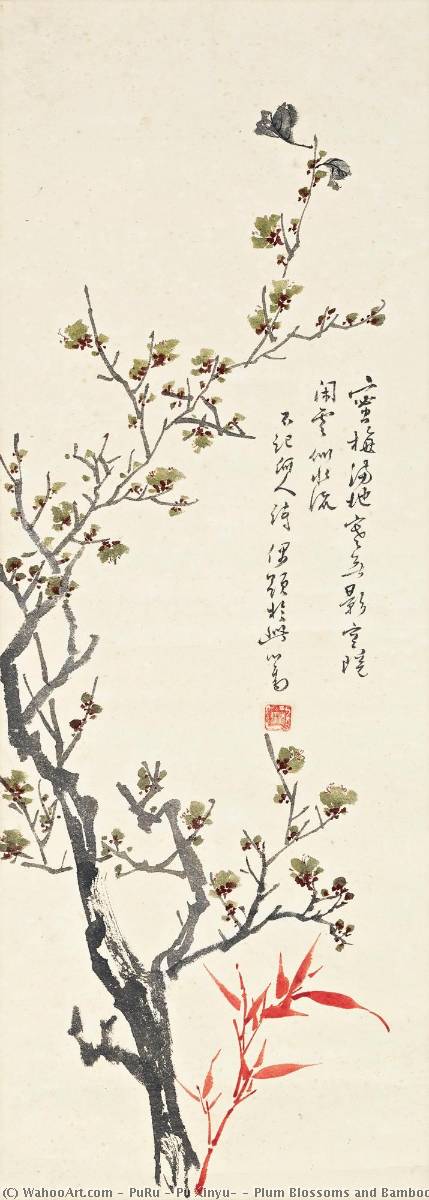 梅滿地無影
閒雲似水流
不記何人詩 偶題於此 心畬
(C) WahooArt.com - PuRu - Pu Xinyu- - Plum Blossoms and Bamboo